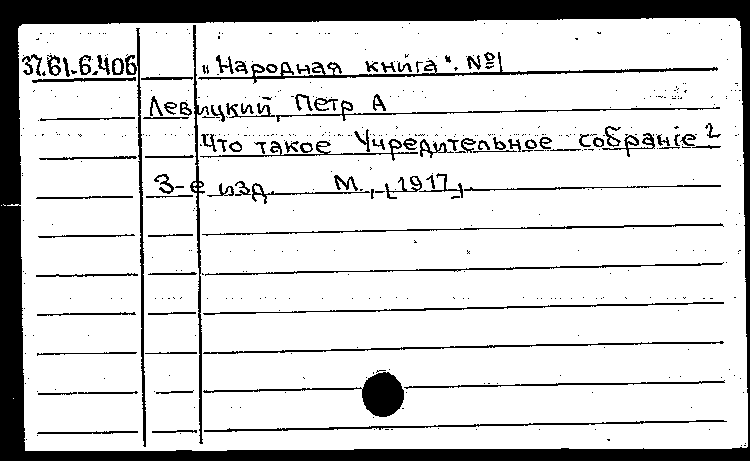 37.61.6.406 „Народная книга“. №1
Левицкий, Петр А
Что такое Учредительное собранiе?
3-е изд. М., [1917].